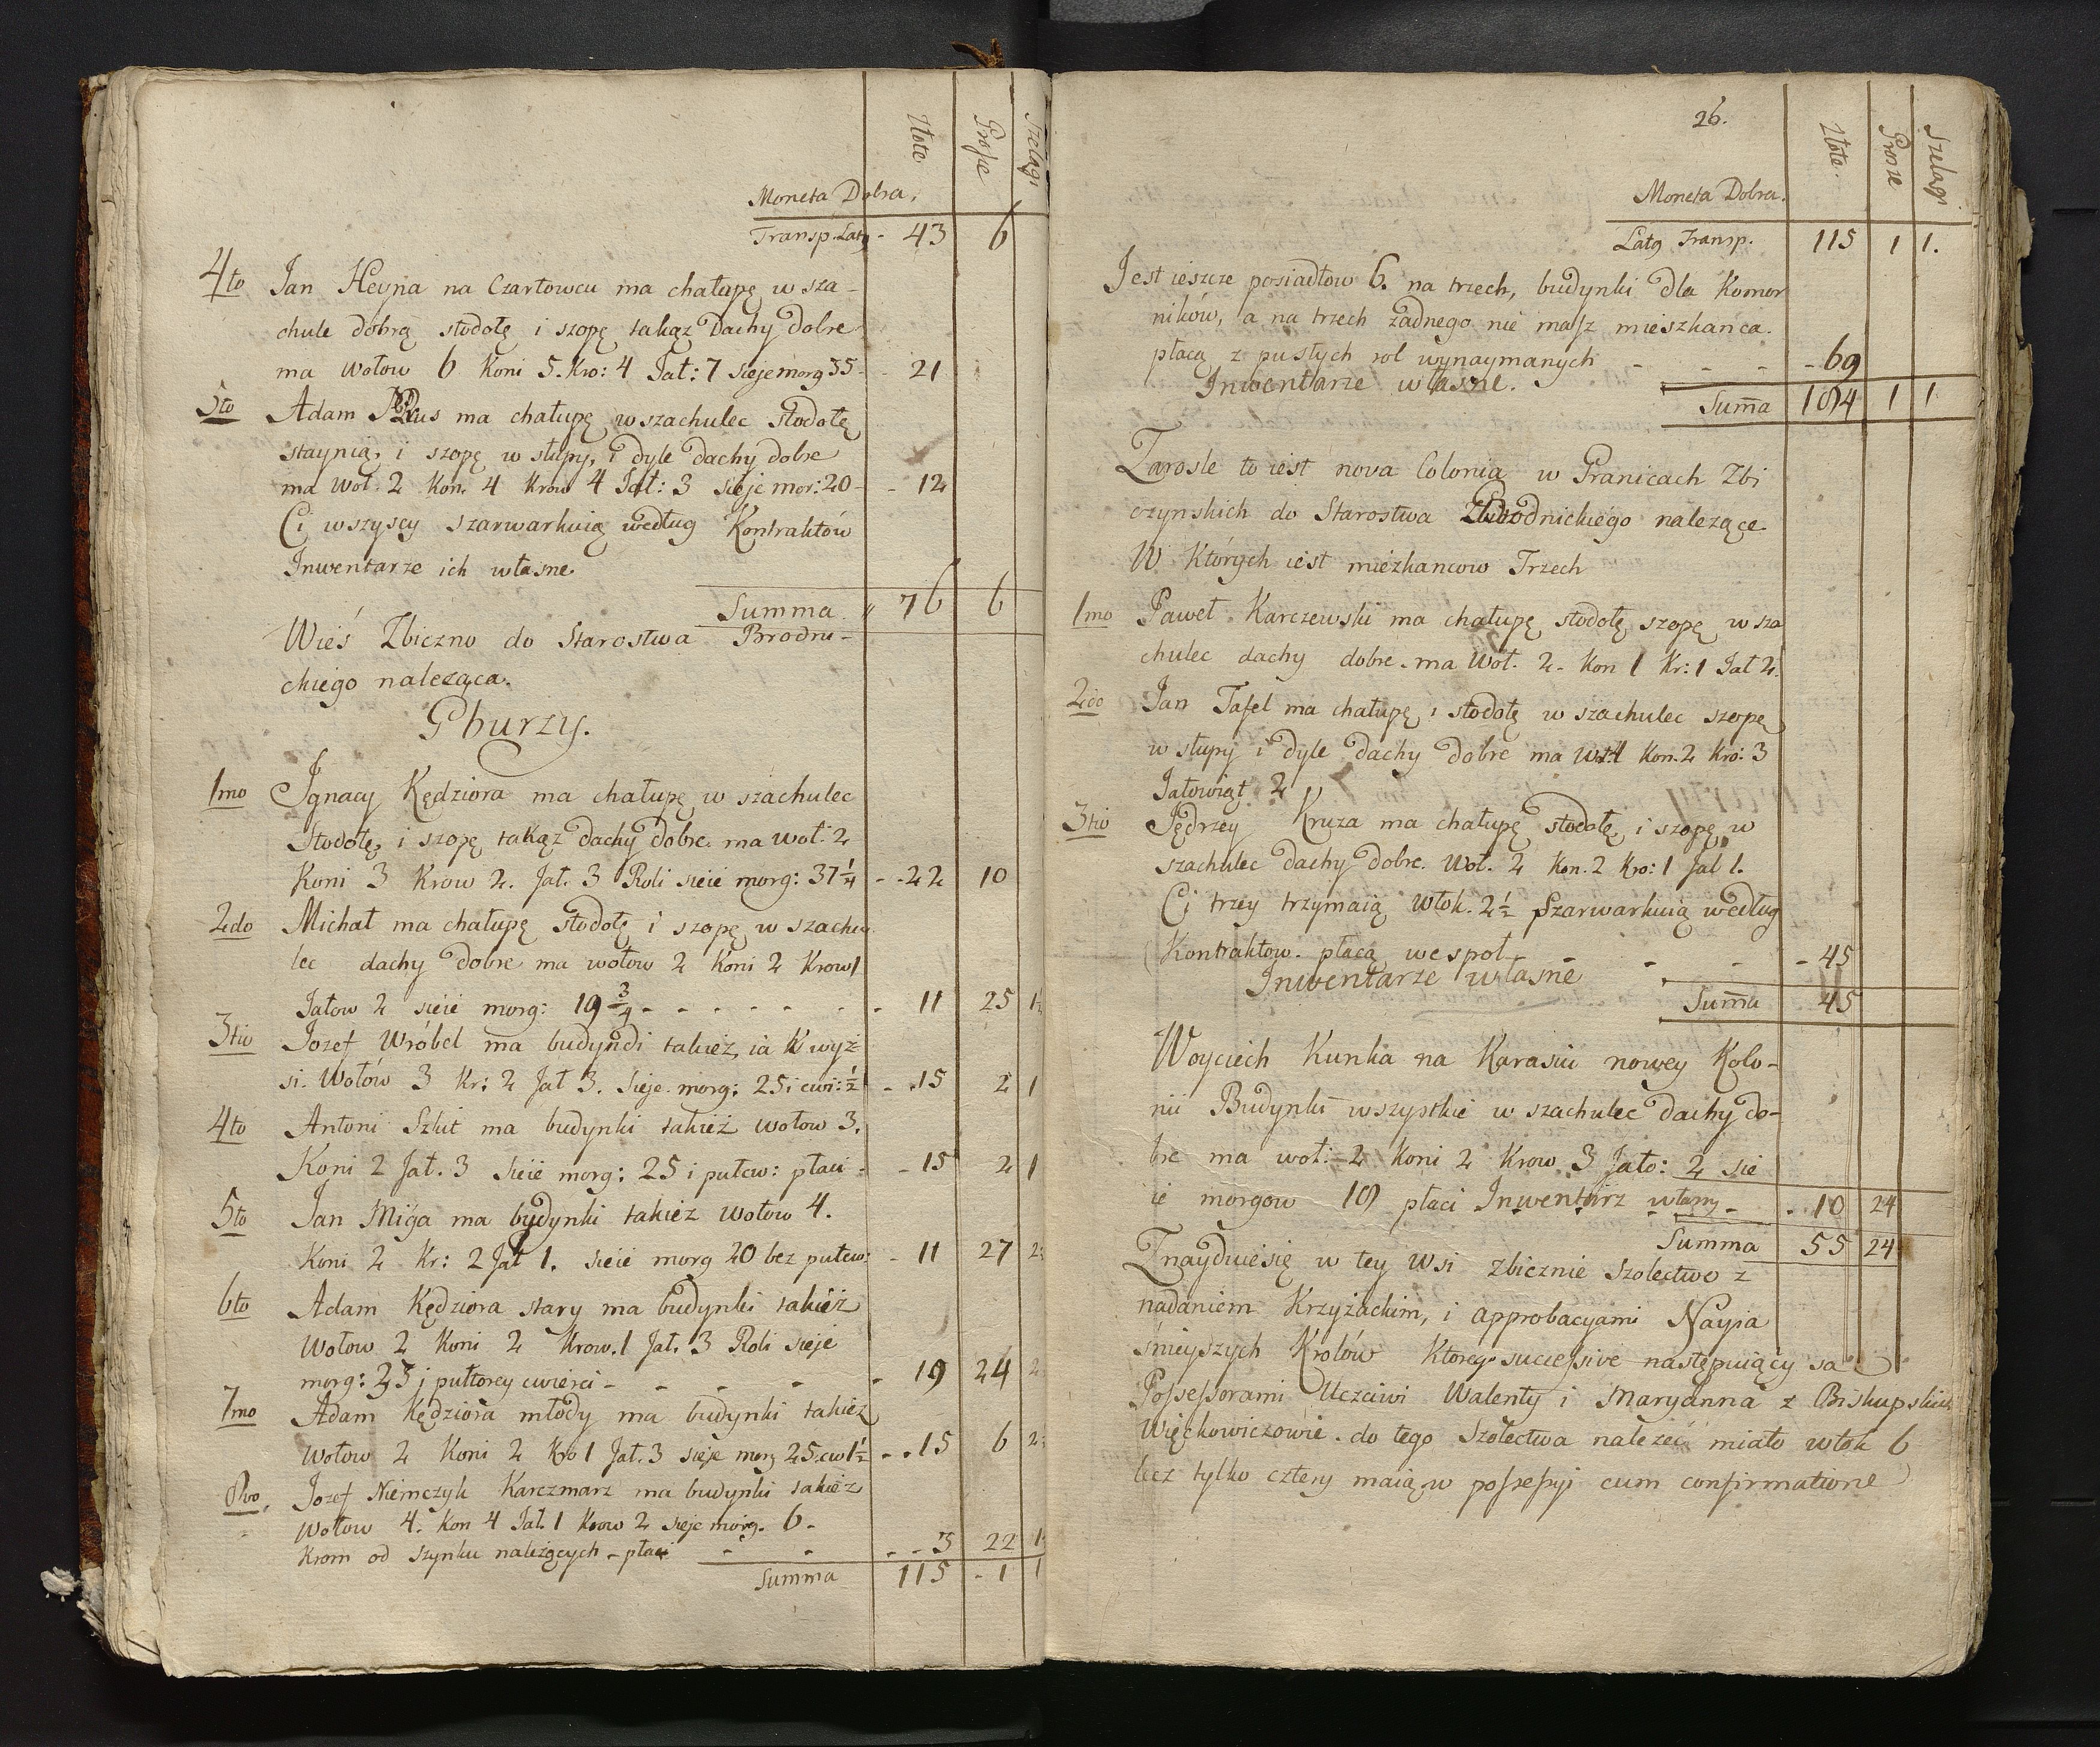 Złote Grosze Szelągi
Moneta Dobra.
Transp. Latq - 43 6
4to Jan Heyna na Czartowcu ma chałupę w sza-
chule dobrą stodołę i szopę takąz Dachy dobre
ma wołow 6 Koni 5. Kro: 4 Jał: 7 sieje morg 35 - 21
5to Adam ma chałupę w szachulec stodołę
staynią, i szopę w słupy, i dyle dachy dobre
ma woł. 2 Kon. 4 Krow 4 Jał: 3 sieje mor: 20 - - 12
Ci wszyscy szarwarkuią według Kontraktów
Inwentarze ich własne
Summa 76 6
Wieś Zbiczno do Starostwa Brodni-
ckiego należąca.
Gburzy.
1mo Jgnacy Kędziora ma chałupę w szachulec
Stodołę, i szopę takąz dachy dobre. ma woł: 2
Koni 3 Krow 2. Jał. 3 Roli sieie morg: 37 1/4 - - 22 10
2do Michał ma chałupę stodołę i szopę w szachu
lec dachy dobre ma wołow 2 Koni 2 Krow 1
Jałow 2 sieie morg: 19 3/4 - - - - - - - 11 25 1
3tio Jozef Wróbel ma budyndi takież, ia K wyż-
si. Wołów 3 Kr: 2 Jał 3. Sieje morg: 25 i cwi: 1/2 - . 15 2 1
4to Antoni Szkit ma budynki takież wołow 3.
Koni 2 Jał. 3 sieie morg: 25 i pułcw: płaci - - 15 2 1
5to Jan Miga ma budynki takież wołow 4.
Koni 2 Kr: 2 Jał 1. sieie morg 20 bez pułcw: - 11 27 2
6to Adam Kędziora stary ma budynki takież
Wołow 2 Koni 2 Krow. 1 Jał. 3 Roli sieje
morg: 33 i pułtorey cwierci - - - - - 19 24 2
7mo Adam Kędziora młody ma budynki takież
wołow 2 Koni 2 Kro 1 Jał. 3 sieje morg 25. cw 1 1/2 - . 15 6 2
8vo. Jozef Niemczyk Karczmarz ma budynki takież
Wołow 4. Kon 4 Jał. 1 Krow 2 sieje morg. 6 -
Krom od szynku należących - płaci - - - - 3 22 1
Summa 115 - 1 1
26.
Złote. Grosze Szelągi
Moneta Dobra.
Latq Transp. 115 1 1.
Jest ieszcze posiadłow 6. na trzech, budynki dla Komor
ników, a na trzech żadnego nie masz mieszkańca.
płacą z pustych rol wynaymanych - - - - 69
Inwentarze własne.
Summa 184 1 1
Zarosle to iest nova Colonia w Granicach Zbi
czynskich do Starostwa Brodnickiego należące
W Których iest mieżkancow Trzech
1mo Paweł Karczewski ma chałupę stodołę szopę w sza
chulec dachy dobre. ma Woł. 2. Kon 1 Kr: 1 Jał 2.
2do Jan Tafel ma chałupę i stodołę w szachulec szopę
w słupy i dyle dachy dobre ma Woł. 4 Kon. 2 Kro: 3
Jałowiąt 2
3tio Jędrzey Kruza ma chałupę stodołę, i szopę w
szachulec dachy dobre. Woł. 2 Kon. 2 Kro: 1 Jał 1.
Ci trzey trzymaią włok. 2 1/2 Szarwarkuią według
Kontraktow. płacą wespoł - - - - 45
Inwentarze własne
Summa 45
Woyciech Kunka na Karasiu nowey Kolo-
nii Budynki wszystkie w szachulec dachy do-
bre ma woł: 2 Koni 2 Krow 3 Jało: 2 sie
ie morgow 18 płaci Inwentarz własny - . 10 24
Summa 55 24
Znayduie się w tey Wsi Zbicznie Szolectwo z
nadaniem Krzyżackim, i approbacyami Nayia
śnieyszych Krolów Ktoreg successive następuiący są
Possessorami Uczciwi Walenty i Maryanna z Biskupskich
Więckowiczowie. do tego Szolectwa należeć miało włok 6
lecz tylko cztery maią w possessyi cum confirmatione